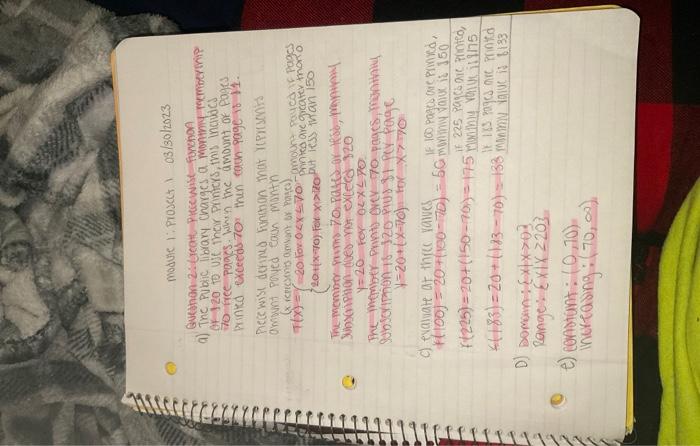 module 1: Project 1 03/30/2023
Question 2: Create Piecewise Function
a) The Public library charges a monthly membership
of $20 to use their printers, this includes
70 free pages. When the amount of Pages
Printed exceeds 70 then each page is $1.
Piecewise defined Function that represents
amount Payed each month
(x represents amount of Pages)
f(x) = { 20 for 0<x≤70 - amount Payed if Pages
Printed are greater than 0
20+(x-70), for x>70 but less than 150
The member Prints 70 Pages or less, monthly
Subscription does not exceed $20
y=20 for 0<x≤70
The member Prints over 70 pages, monthly
Subscription is $20 Plus $1 Per Page
y=20+(x-70), for x>70
c) evaluate at three values
f(100) = 20+(100-70) = 50 If 100 Pages are Printed, monthly value is $50
f(225) = 20+(150-70) = 175 If 225 Pages are Printed, monthly value is $175
f(183) = 20+(183-70) = 133 If 183 Pages are Printed monthly value is $133
D) Domain: {x|x>0}
Range: {x|x≥20}
e) Constant: (0,70)
Increasing: (70,∞)